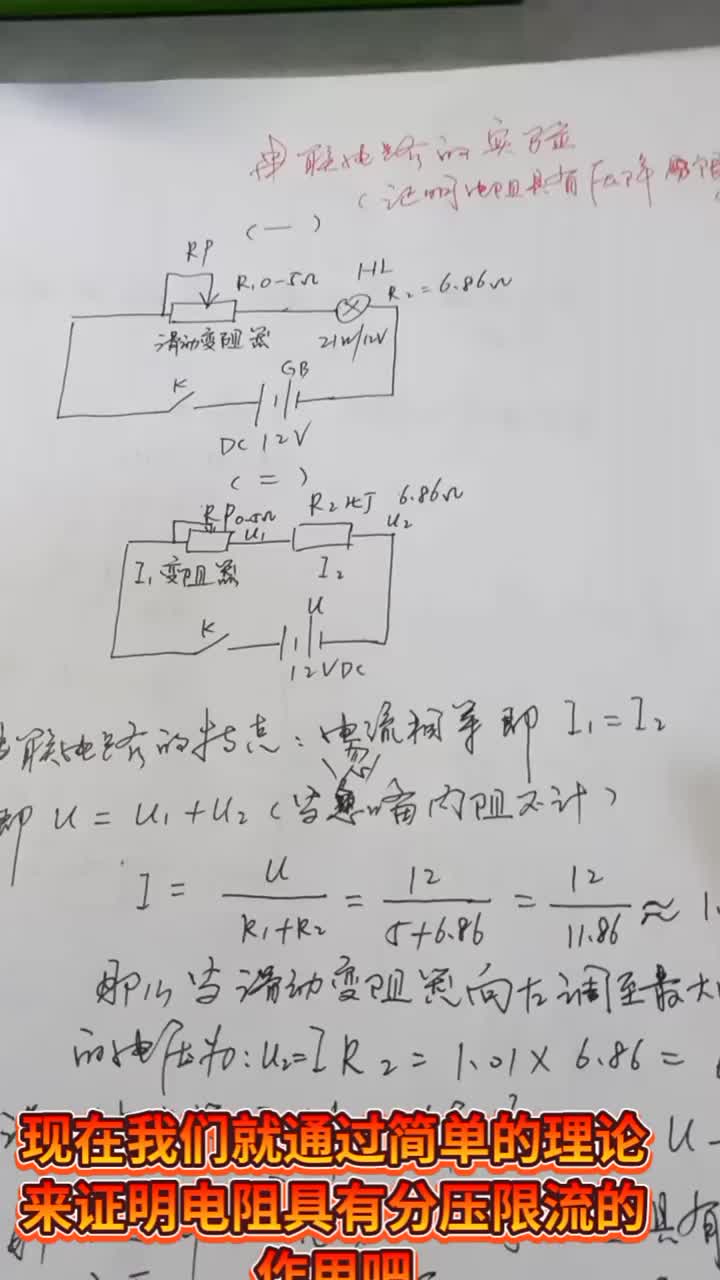 串联电路的实验
(证明电阻具有
(一)
RP
R₁0-5Ω
HL
R₂=6.86Ω
滑动变阻器
21W/12V
K
GB
DC 12V
(二)
RP0-5Ω
U₁
R₂灯 6.86Ω
U₂
I₁ 变阻器
I₂
K
U
12VDC
联电路的特点：电流相等即 I₁=I₂
即 U=U₁+U₂(当 内阻不计)
I = U/(R₁+R₂) = 12/(5+6.86) = 12/11.86 ≈ 1.
那么当滑动变阻器向左调至最大
的电压为:U₂=IR₂=1.01×6.86=
U-
具有
现在我们就通过简单的理论
来证明电阻具有分压限流的
作用吧